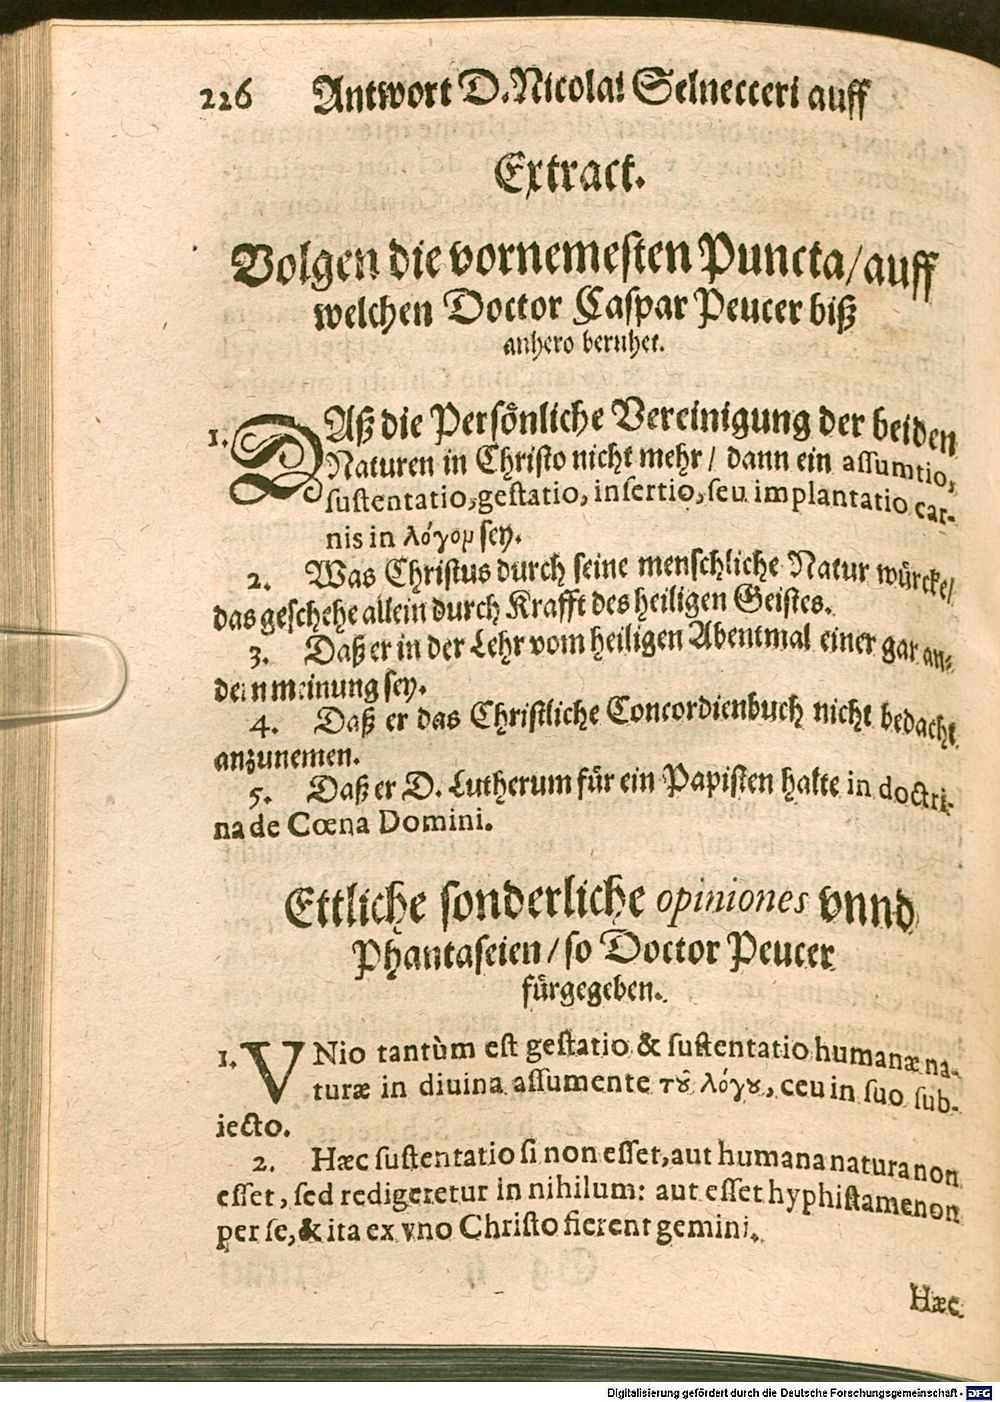 226 Antwort D. Nicolai Selnecceri auff
Extract.
Volgen die vornemesten Puncta/auff
welchen Doctor Caspar Peucer biß
anhero beruhet.
1. DAß die Persönliche Vereinigung der beiden
Naturen in Christo nicht mehr/ dann ein assumtio,
sustentatio, gestatio, insertio, seu implantatio car-
nis in λόγον sey.
2. Was Christus durch seine menschliche Natur würcke/
das geschehe allein durch Krafft des heiligen Geistes.
3. Daß er in der Lehr vom heiligen Abentmal einer gar an-
dern meinung sey.
4. Daß er das Christliche Concordienbuch nicht bedacht
anzunemen.
5. Daß er D. Lutherum für ein Papisten halte in doctri-
na de Cœna Domini.
Ettliche sonderliche opiniones vnnd
Phantaseien/so Doctor Peucer
fürgegeben.
1. VNio tantùm est gestatio & sustentatio humanæ na-
turæ in diuina assumente τοῦ λόγου, ceu in suo sub-
iecto.
2. Hæc sustentatio si non esset, aut humana natura non
esset, sed redigeretur in nihilum: aut esset hyphistamenon
per se, & ita ex vno Christo fierent gemini.
Hæc
Digitalisierung gefördert durch die Deutsche Forschungsgemeinschaft - DFG